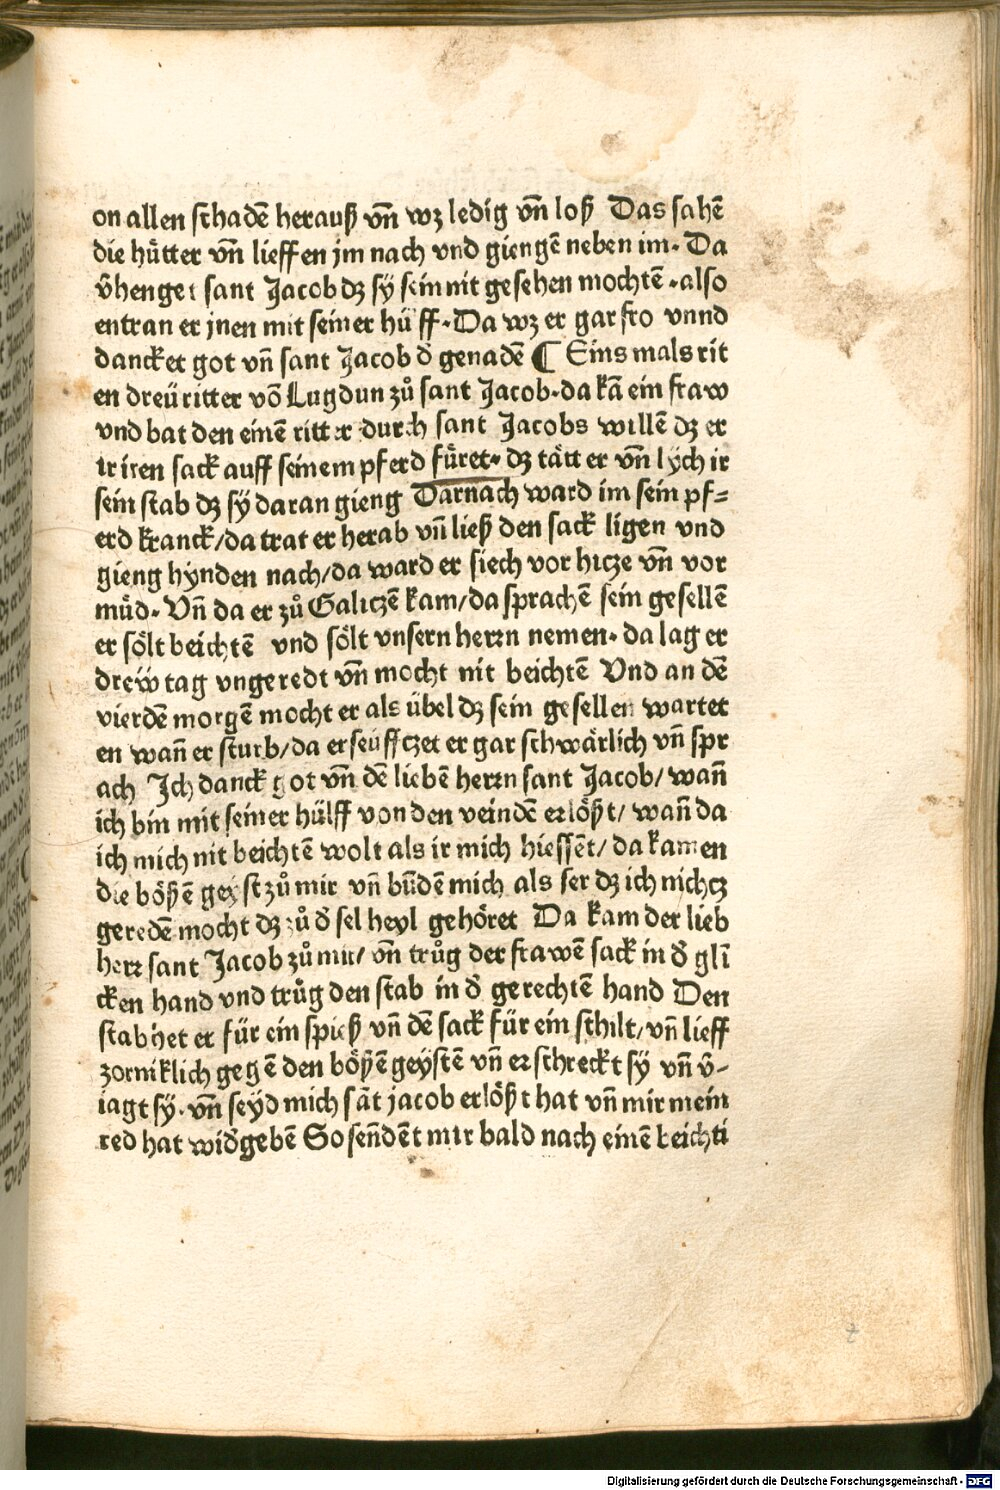 on allen schadẽ herauß vñ wz ledig vñ loß Das sahẽ
die hütter vñ lieffen jm nach vnd giengẽ neben im. Da
v̄henget sant Jacob dz sy̋ sein nit gesehen mochtẽ. also
entran er jnen mit seiner hülff. Da wz er gar fro vnnd
dancket got vñ sant Jacob d̄ genadẽ ¶ Eins mals rit
en dreü ritter võ Lugdun zů sant Jacob. da kã ein fraw
vnd bat den einẽ ritter durch sant Jacobs willẽ dz er
ir iren sack auff seinem pferd füret. dz tätt er vñ ly̋ch ir
sein stab dz sy̋ daran gieng Darnach ward im sein pf⸗
erd kranck/ da trat er herab vñ ließ den sack ligen vnd
gieng hy̋nden nach/ da ward er siech vor hicze vñ vor
müd. Vñ da er zů Galiczẽ kam/ da sprachẽ sein gesellẽ
er sölt beichtẽ vnd sölt vnsern herrn nemen. da lag er
dreẅ tag vngeredt vñ mocht nit beichtẽ Vnd an dẽ
vierdẽ morgẽ mocht er als übel dz sein gesellen wartet
en wañ er sturb/ da erseüffczet er gar schwärlich vñ spr
ach Ich danck got vñ dẽ liebẽ herrn sant Jacob/ wañ
ich bin mit seiner hülff von den veindẽ erlößt/ wañ da
ich mich nit beichtẽ wolt als ir mich hiessẽt/ da kamen
die bößẽ gey̋st zů mir vñ bũdẽ mich als ser dz ich nichcz
geredẽ mocht dz zů d̄ sel heyl gehöret Da kam der lieb
herr sant Jacob zů mir/ vñ trůg der frawẽ sack in d̄ glĩ
cken hand vnd trůg den stab in d̄ gerechtẽ hand Den
stab het er für ein spieß vñ dẽ sack für ein schilt/ vñ lieff
zorniklich gegẽ den bößẽ gey̋stẽ vñ erschreckt sy̋ vñ v̄-
iagt sy̋. vñ sey̋d mich sãt jacob erlößt hat vñ mir mein
red hat wid̄gebẽ So sendẽt mir bald nach einẽ beichti
Digitalisierung gefördert durch die Deutsche Forschungsgemeinschaft - DFG